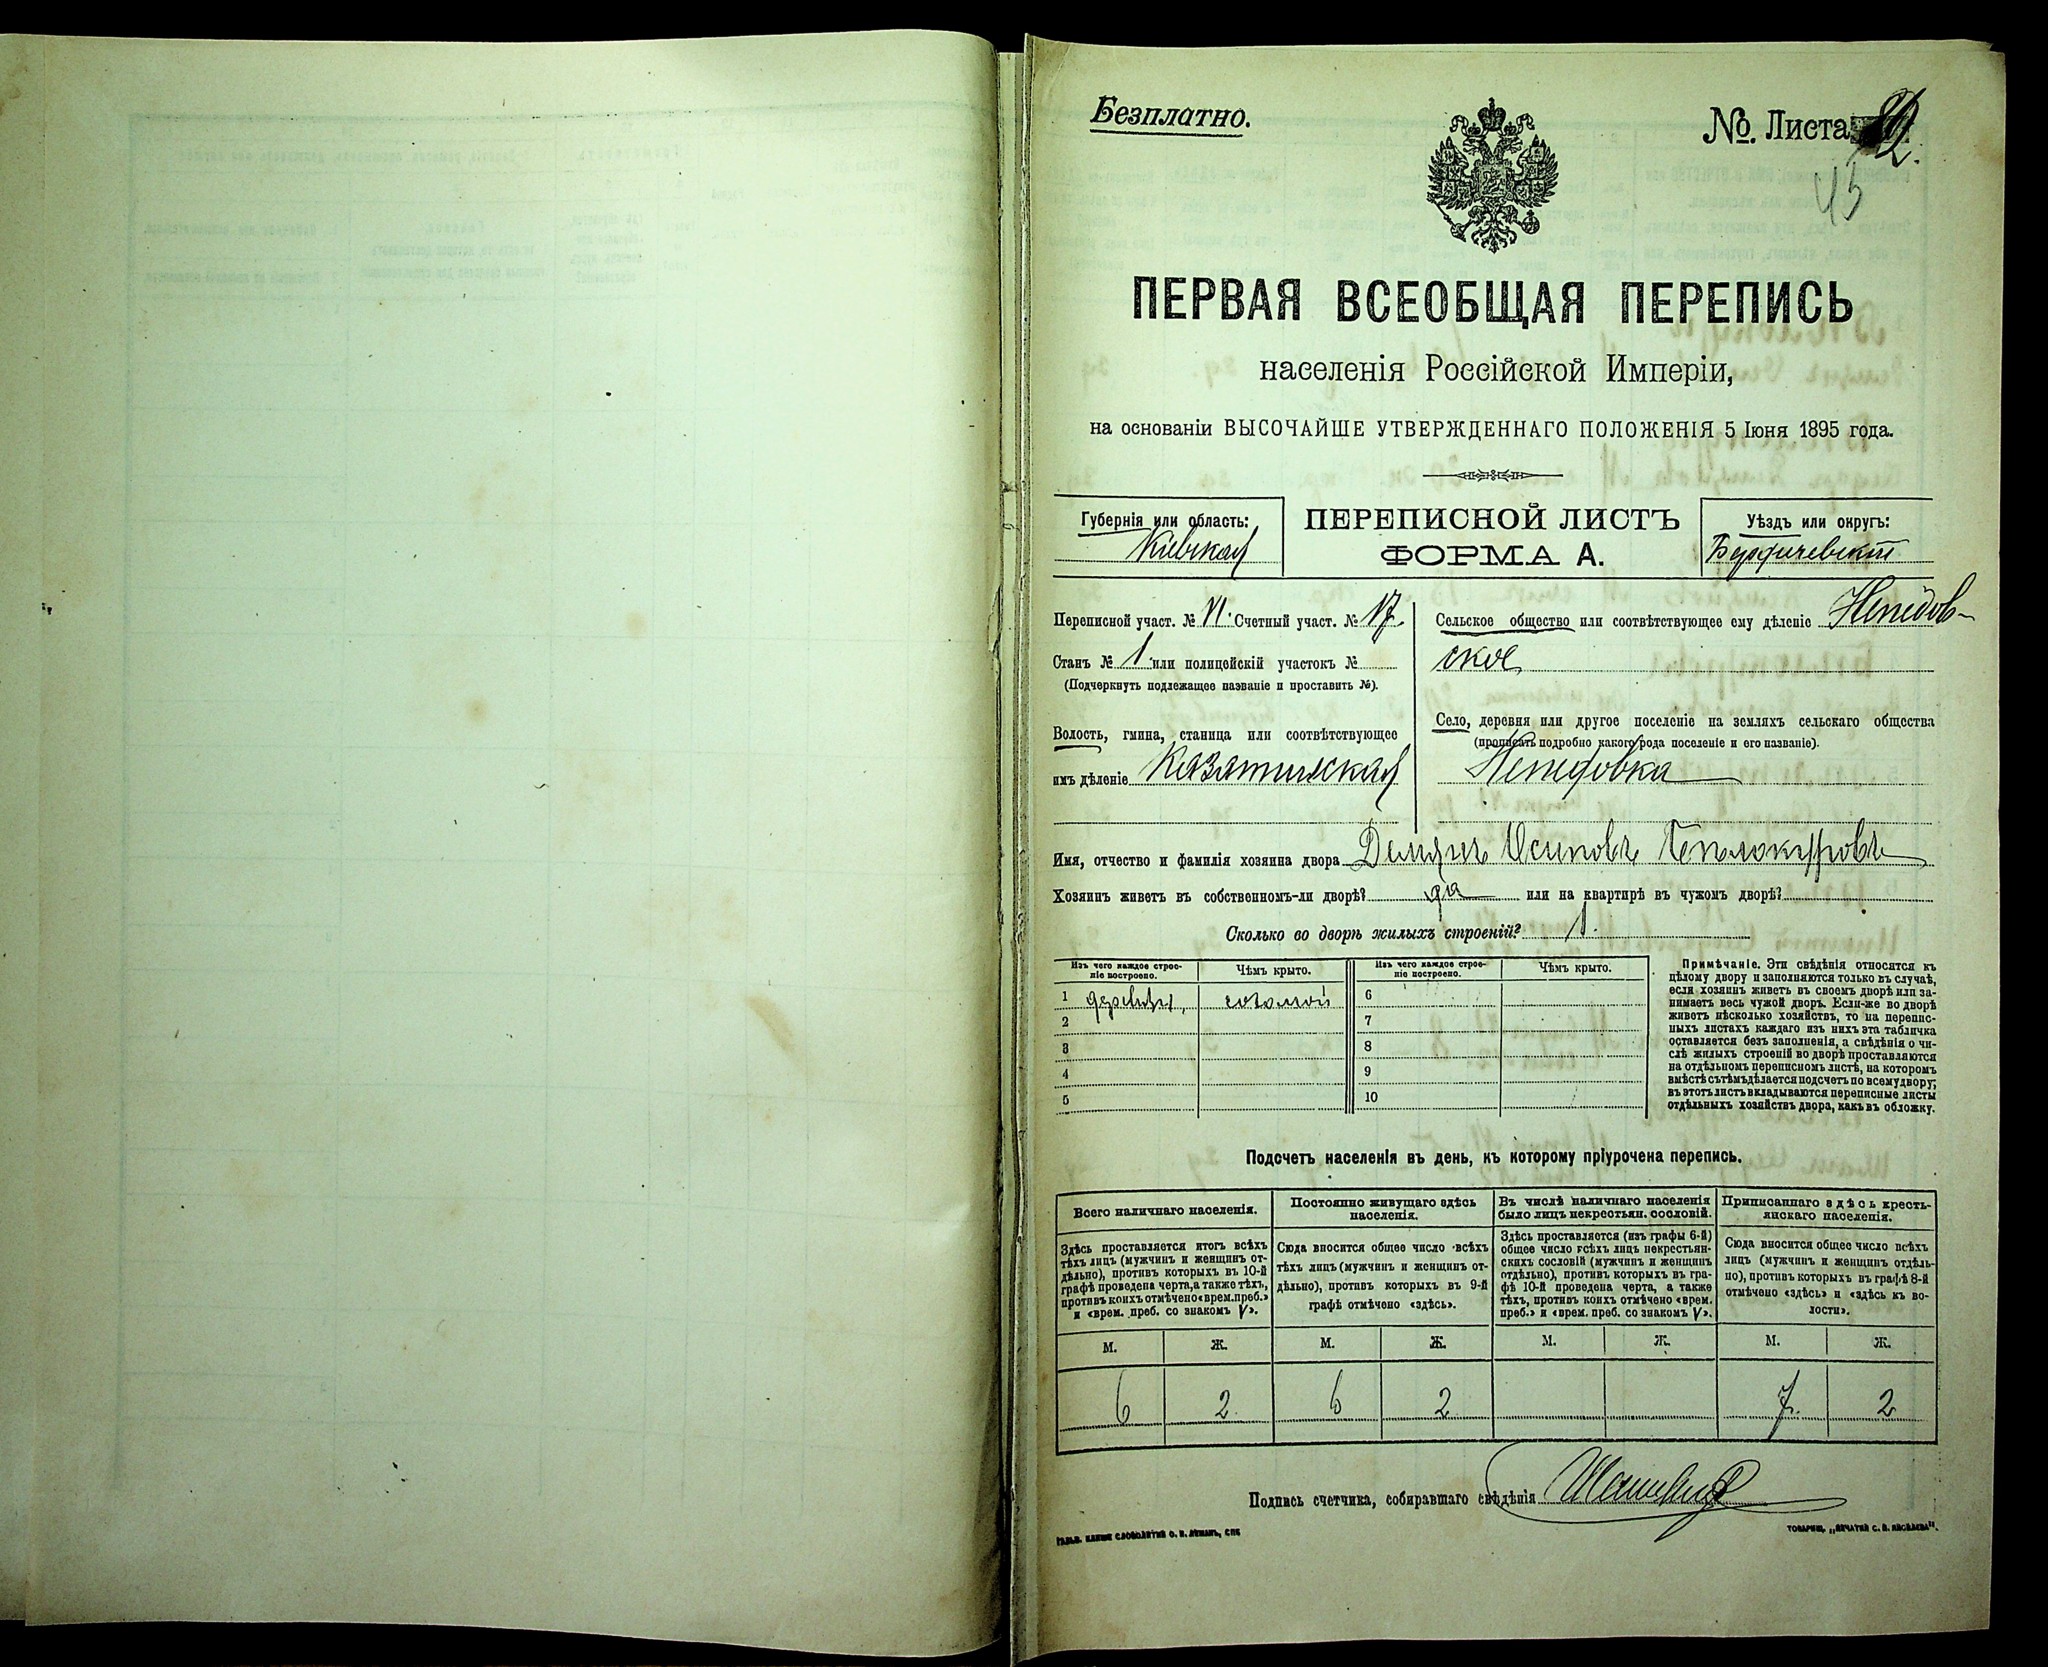 Безплатно.
№. Листа 82.
45
ПЕРВАЯ ВСЕОБЩАЯ ПЕРЕПИСЬ
населенія Россійской Имперіи,
на основаніи ВЫСОЧАЙШЕ УТВЕРЖДЕННАГО ПОЛОЖЕНІЯ 5 Іюня 1895 года.
Губернія или область:
Кіевская
ПЕРЕПИСНОЙ ЛИСТЪ
ФОРМА А.
Уѣздъ или округъ:
Бердичевскій
Переписной участ. № VI. Счетный участ. № 17.
Станъ № 1 или полицейскій участокъ №
(Подчеркнуть подлежащее названіе и проставить №).
Волость, гмина, станица или соотвѣтствующее
имъ дѣленіе Казатинская
Сельское общество или соотвѣтствующее ему дѣленіе Непедов-
ское
Село, деревня или другое поселеніе на земляхъ сельскаго общества
(прописать подробно какого рода поселеніе и его названіе).
Непедовка
Имя, отчество и фамилія хозяина двора Демянъ Осиповъ Бѣлокуровъ
Хозяинъ живетъ въ собственномъ-ли дворѣ? да или на квартирѣ въ чужомъ дворѣ?
Сколько во дворѣ жилыхъ строеній? 1.
Изъ чего каждое строе-
ніе построено.
Чѣмъ крыто.
Изъ чего каждое строе-
ніе построено.
Чѣмъ крыто.
1 соломой 6
2 7
3 8
4 9
5 10
Примѣчаніе. Эти свѣдѣнія относятся къ
цѣлому двору и заполняются только въ случаѣ,
если хозяинъ живетъ въ своемъ дворѣ или за-
нимаетъ весь чужой дворъ. Если-же во дворѣ
живетъ нѣсколько хозяйствъ, то на перепис-
ныхъ листахъ каждаго изъ нихъ эта табличка
оставляется безъ заполненія, а свѣдѣнія о чи-
слѣ жилыхъ строеній во дворѣ проставляются
на отдѣльномъ переписномъ листѣ, на которомъ
вмѣстѣ съ тѣмъ дѣлается подсчетъ по всему двору;
въ этотъ листъ вкладываются переписные листы
отдѣльныхъ хозяйствъ двора, какъ въ обложку.
Подсчетъ населенія въ день, къ которому пріурочена перепись.
Всего наличнаго населенія.
Здѣсь проставляется итогъ всѣхъ
тѣхъ лицъ (мужчинъ и женщинъ от-
дѣльно), противъ которыхъ въ 10-й
графѣ проведена черта, а также тѣхъ,
противъ коихъ отмѣчено «врем. преб.»
и «врем. преб. со знакомъ V».
Постоянно живущаго здѣсь
населенія.
Сюда вносится общее число всѣхъ
тѣхъ лицъ (мужчинъ и женщинъ от-
дѣльно), противъ которыхъ въ 9-й
графѣ отмѣчено «здѣсь».
Въ числѣ наличнаго населенія
было лицъ некрестьян. сословій.
Здѣсь проставляется (изъ графы 6-й)
общее число всѣхъ лицъ некрестьян-
скихъ сословій (мужчинъ и женщинъ
отдѣльно), противъ которыхъ въ гра-
фѣ 10-й проведена черта, а также
тѣхъ, противъ коихъ отмѣчено «врем.
преб.» и «врем. преб. со знакомъ V».
Приписаннаго здѣсь кресть-
янскаго населенія.
Сюда вносится общее число всѣхъ
лицъ (мужчинъ и женщинъ отдѣль-
но), противъ которыхъ въ графѣ 8-й
отмѣчено «здѣсь» и «здѣсь къ во-
лости».
М. Ж. М. Ж. М. Ж. М. Ж.
6 2 6 2 7. 2
Подпись счетчика, собиравшаго свѣдѣнія
ГАЛЬВ. КЛИШЕ СЛОВОЛИТНИ О. И. ЛЕМАНЪ, СПБ
ТОВАРИЩ. „ПЕЧАТНЯ С. П. ЯКОВЛЕВА".